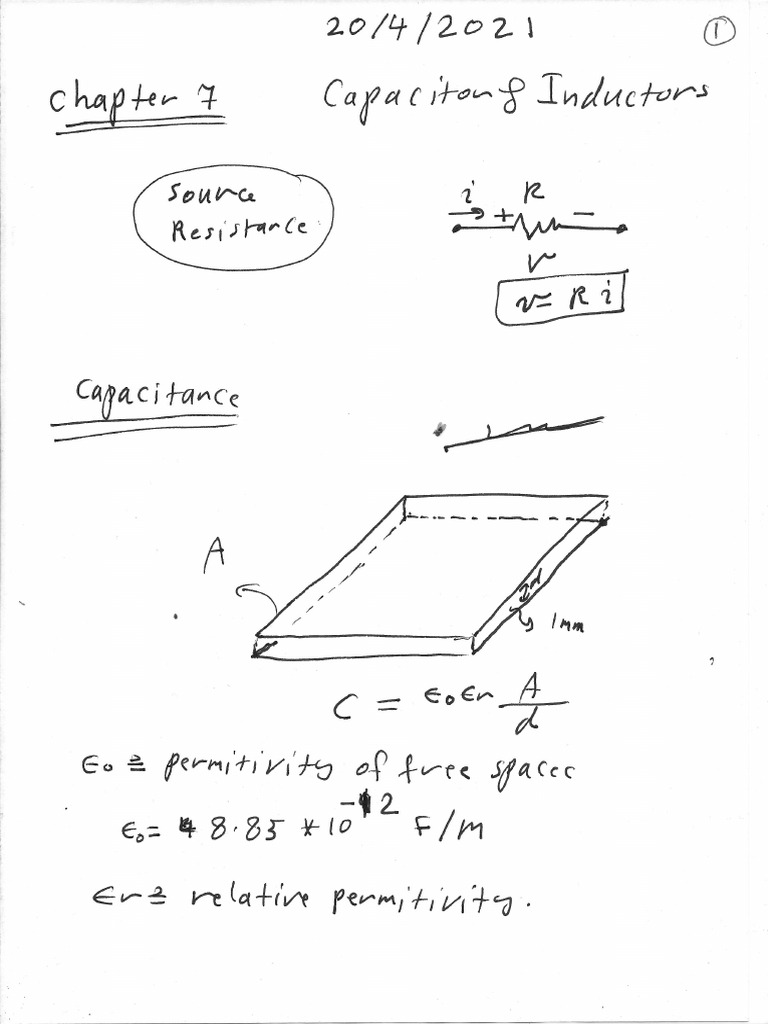 20/4/2021
1
Chapter 7 Capacitor & Inductors
Source
Resistance
i R
+ −
v
v = R i
Capacitance
A
d
1 mm
C = ϵo ϵr A/d
ϵo ≜ permitivity of free spacec
ϵo = 8.85 * 10^-12 F/m
ϵr ≜ relative permitivity.